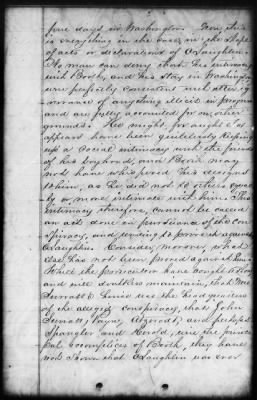 five days in Washington. Now this
is everything in the case, in the shape
of acts or declarations of O'Laughlin.
No man can deny that his intimacy
with Booth, and his stay in Washington
were perfectly consistent with utter ig-
norance of anything illicit in progress
and are fully accounted for on other
grounds. He might, for aught that
appears have been guiltlessly keeping
up a social intimacy with the friend
of his boyhood, and Booth may
not have disclosed his designs
to him, as he did not to others equal-
ly or more intimate with him. This
intimacy therefore, cannot be called
an act done in pursuance of the Con-
spiracy, and tending to prove it against
O'Laughlin. Consider, moreover, what
else has not been proved against him.
While the prosecution have sought to show
and will doubtless maintain, that Mrs
Surratt's house was the head quarters
of the alleged conspiracy, that John
Surratt, Payne, Atzerodt, and perhaps
Spangler and Herold, were the princi-
pal accomplices of Booth, they have
not shown that O'Laughlin was ever